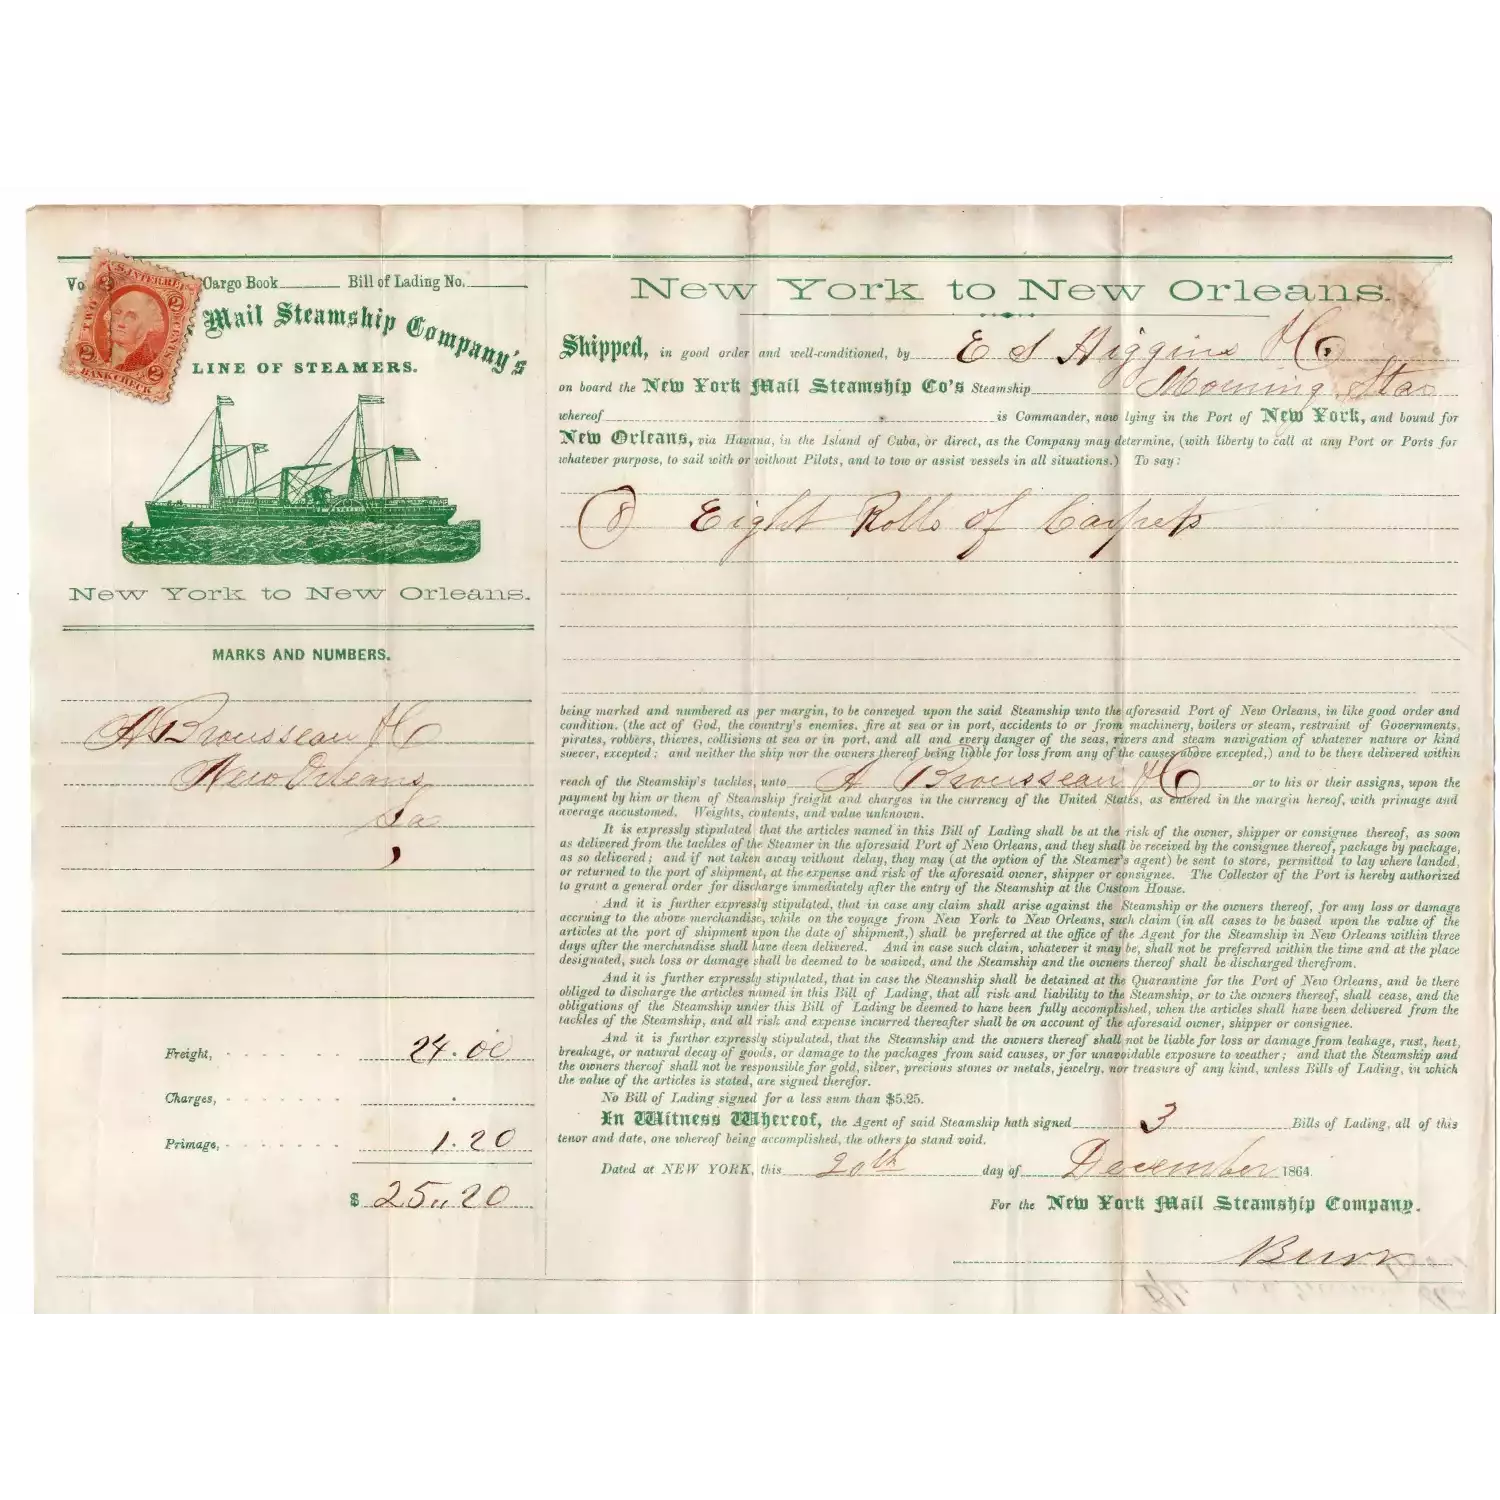 Vo Cargo Book Bill of Lading No.
U.S. INTER. REV.
TWO CENTS
2 2
BANK CHECK
Mail Steamship Company's
LINE OF STEAMERS.
New York to New Orleans.
MARKS AND NUMBERS.
A Brousseau & Co
New Orleans
La
Freight, 24.00
Charges,
Primage, 1.20
$ 25,,20
New York to New Orleans.
Shipped, in good order and well-conditioned, by E S Higgins & Co
on board the New York Mail Steamship Co's Steamship Morning Star
whereof is Commander, now lying in the Port of New York, and bound for
New Orleans, via Havana, in the Island of Cuba, or direct, as the Company may determine, (with liberty to call at any Port or Ports for
whatever purpose, to sail with or without Pilots, and to tow or assist vessels in all situations.) To say:
(8) Eight Rolls of Carpets
being marked and numbered as per margin, to be conveyed upon the said Steamship unto the aforesaid Port of New Orleans, in like good order and
condition. (the act of God, the country's enemies, fire at sea or in port, accidents to or from machinery, boilers or steam, restraint of Governments,
pirates, robbers, thieves, collisions at sea or in port, and all and every danger of the seas, rivers and steam navigation of whatever nature or kind
soever, excepted; and neither the ship nor the owners thereof being liable for loss from any of the causes above excepted,) and to be there delivered within
reach of the Steamship's tackles, unto A Brousseau & Co or to his or their assigns, upon the
payment by him or them of Steamship freight and charges in the currency of the United States, as entered in the margin hereof, with primage and
average accustomed. Weights, contents, and value unknown.
It is expressly stipulated that the articles named in this Bill of Lading shall be at the risk of the owner, shipper or consignee thereof, as soon
as delivered from the tackles of the Steamer in the aforesaid Port of New Orleans, and they shall be received by the consignee thereof, package by package,
as so delivered; and if not taken away without delay, they may (at the option of the Steamer's agent) be sent to store, permitted to lay where landed,
or returned to the port of shipment, at the expense and risk of the aforesaid owner, shipper or consignee. The Collector of the Port is hereby authorized
to grant a general order for discharge immediately after the entry of the Steamship at the Custom House.
And it is further expressly stipulated, that in case any claim shall arise against the Steamship or the owners thereof, for any loss or damage
accruing to the above merchandise, while on the voyage from New York to New Orleans, such claim (in all cases to be based upon the value of the
articles at the port of shipment upon the date of shipment,) shall be preferred at the office of the Agent for the Steamship in New Orleans within three
days after the merchandise shall have deen delivered. And in case such claim, whatever it may be, shall not be preferred within the time and at the place
designated, such loss or damage shall be deemed to be waived, and the Steamship and the owners thereof shall be discharged therefrom.
And it is further expressly stipulated, that in case the Steamship shall be detained at the Quarantine for the Port of New Orleans, and be there
obliged to discharge the articles named in this Bill of Lading, that all risk and liability to the Steamship, or to the owners thereof, shall cease, and the
obligations of the Steamship under this Bill of Lading be deemed to have been fully accomplished, when the articles shall have been delivered from the
tackles of the Steamship, and all risk and expense incurred thereafter shall be on account of the aforesaid owner, shipper or consignee.
And it is further expressly stipulated, that the Steamship and the owners thereof shall not be liable for loss or damage from leakage, rust, heat,
breakage, or natural decay of goods, or damage to the packages from said causes, or for unavoidable exposure to weather; and that the Steamship and
the owners thereof shall not be responsible for gold, silver, precious stones or metals, jewelry, nor treasure of any kind, unless Bills of Lading, in which
the value of the articles is stated, are signed therefor.
No Bill of Lading signed for a less sum than $5.25.
In Witness Whereof, the Agent of said Steamship hath signed 3 Bills of Lading, all of this
tenor and date, one whereof being accomplished, the others to stand void.
Dated at NEW YORK, this 20th day of December 1864.
For the New York Mail Steamship Company.
Burr